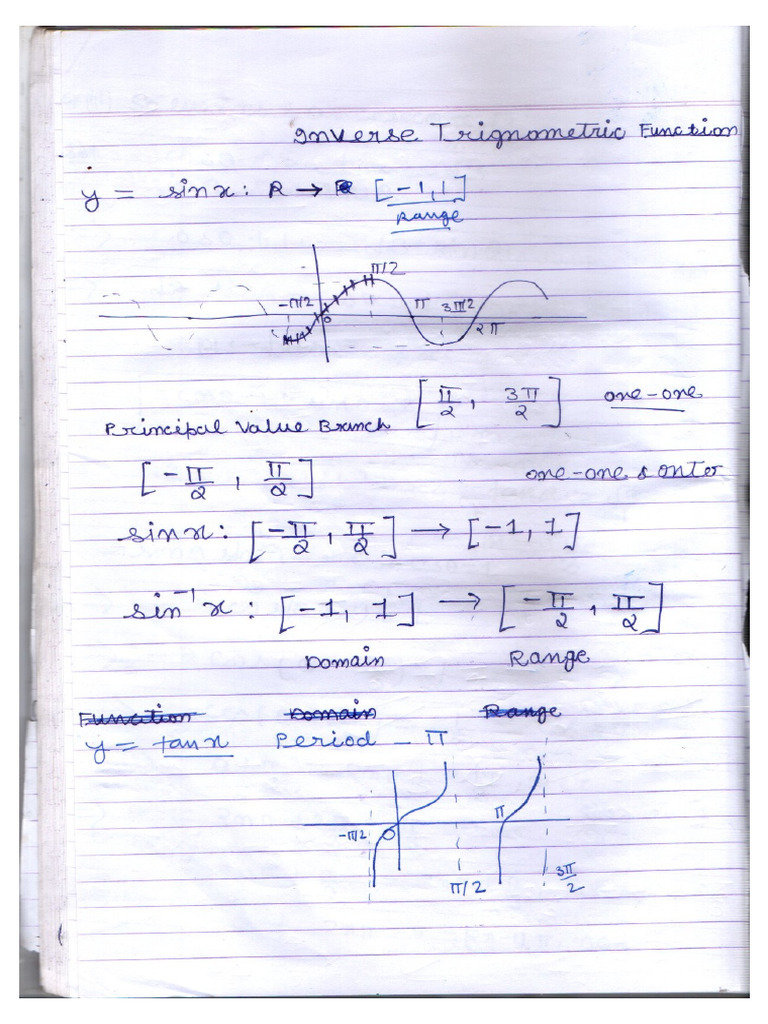 Inverse Trignometric Function
y = sin x : R → R [-1, 1]
Range
π/2
-π/2 0 π 3π/2 2π
[π/2, 3π/2] one-one
Principal Value Branch
[-π/2, π/2] one-one & onto
sin x : [-π/2, π/2] → [-1, 1]
sin⁻¹ x : [-1, 1] → [-π/2, π/2]
Domain Range
Function Domain Range
y = tan x Period - π
-π/2 0 π
π/2 3π/2